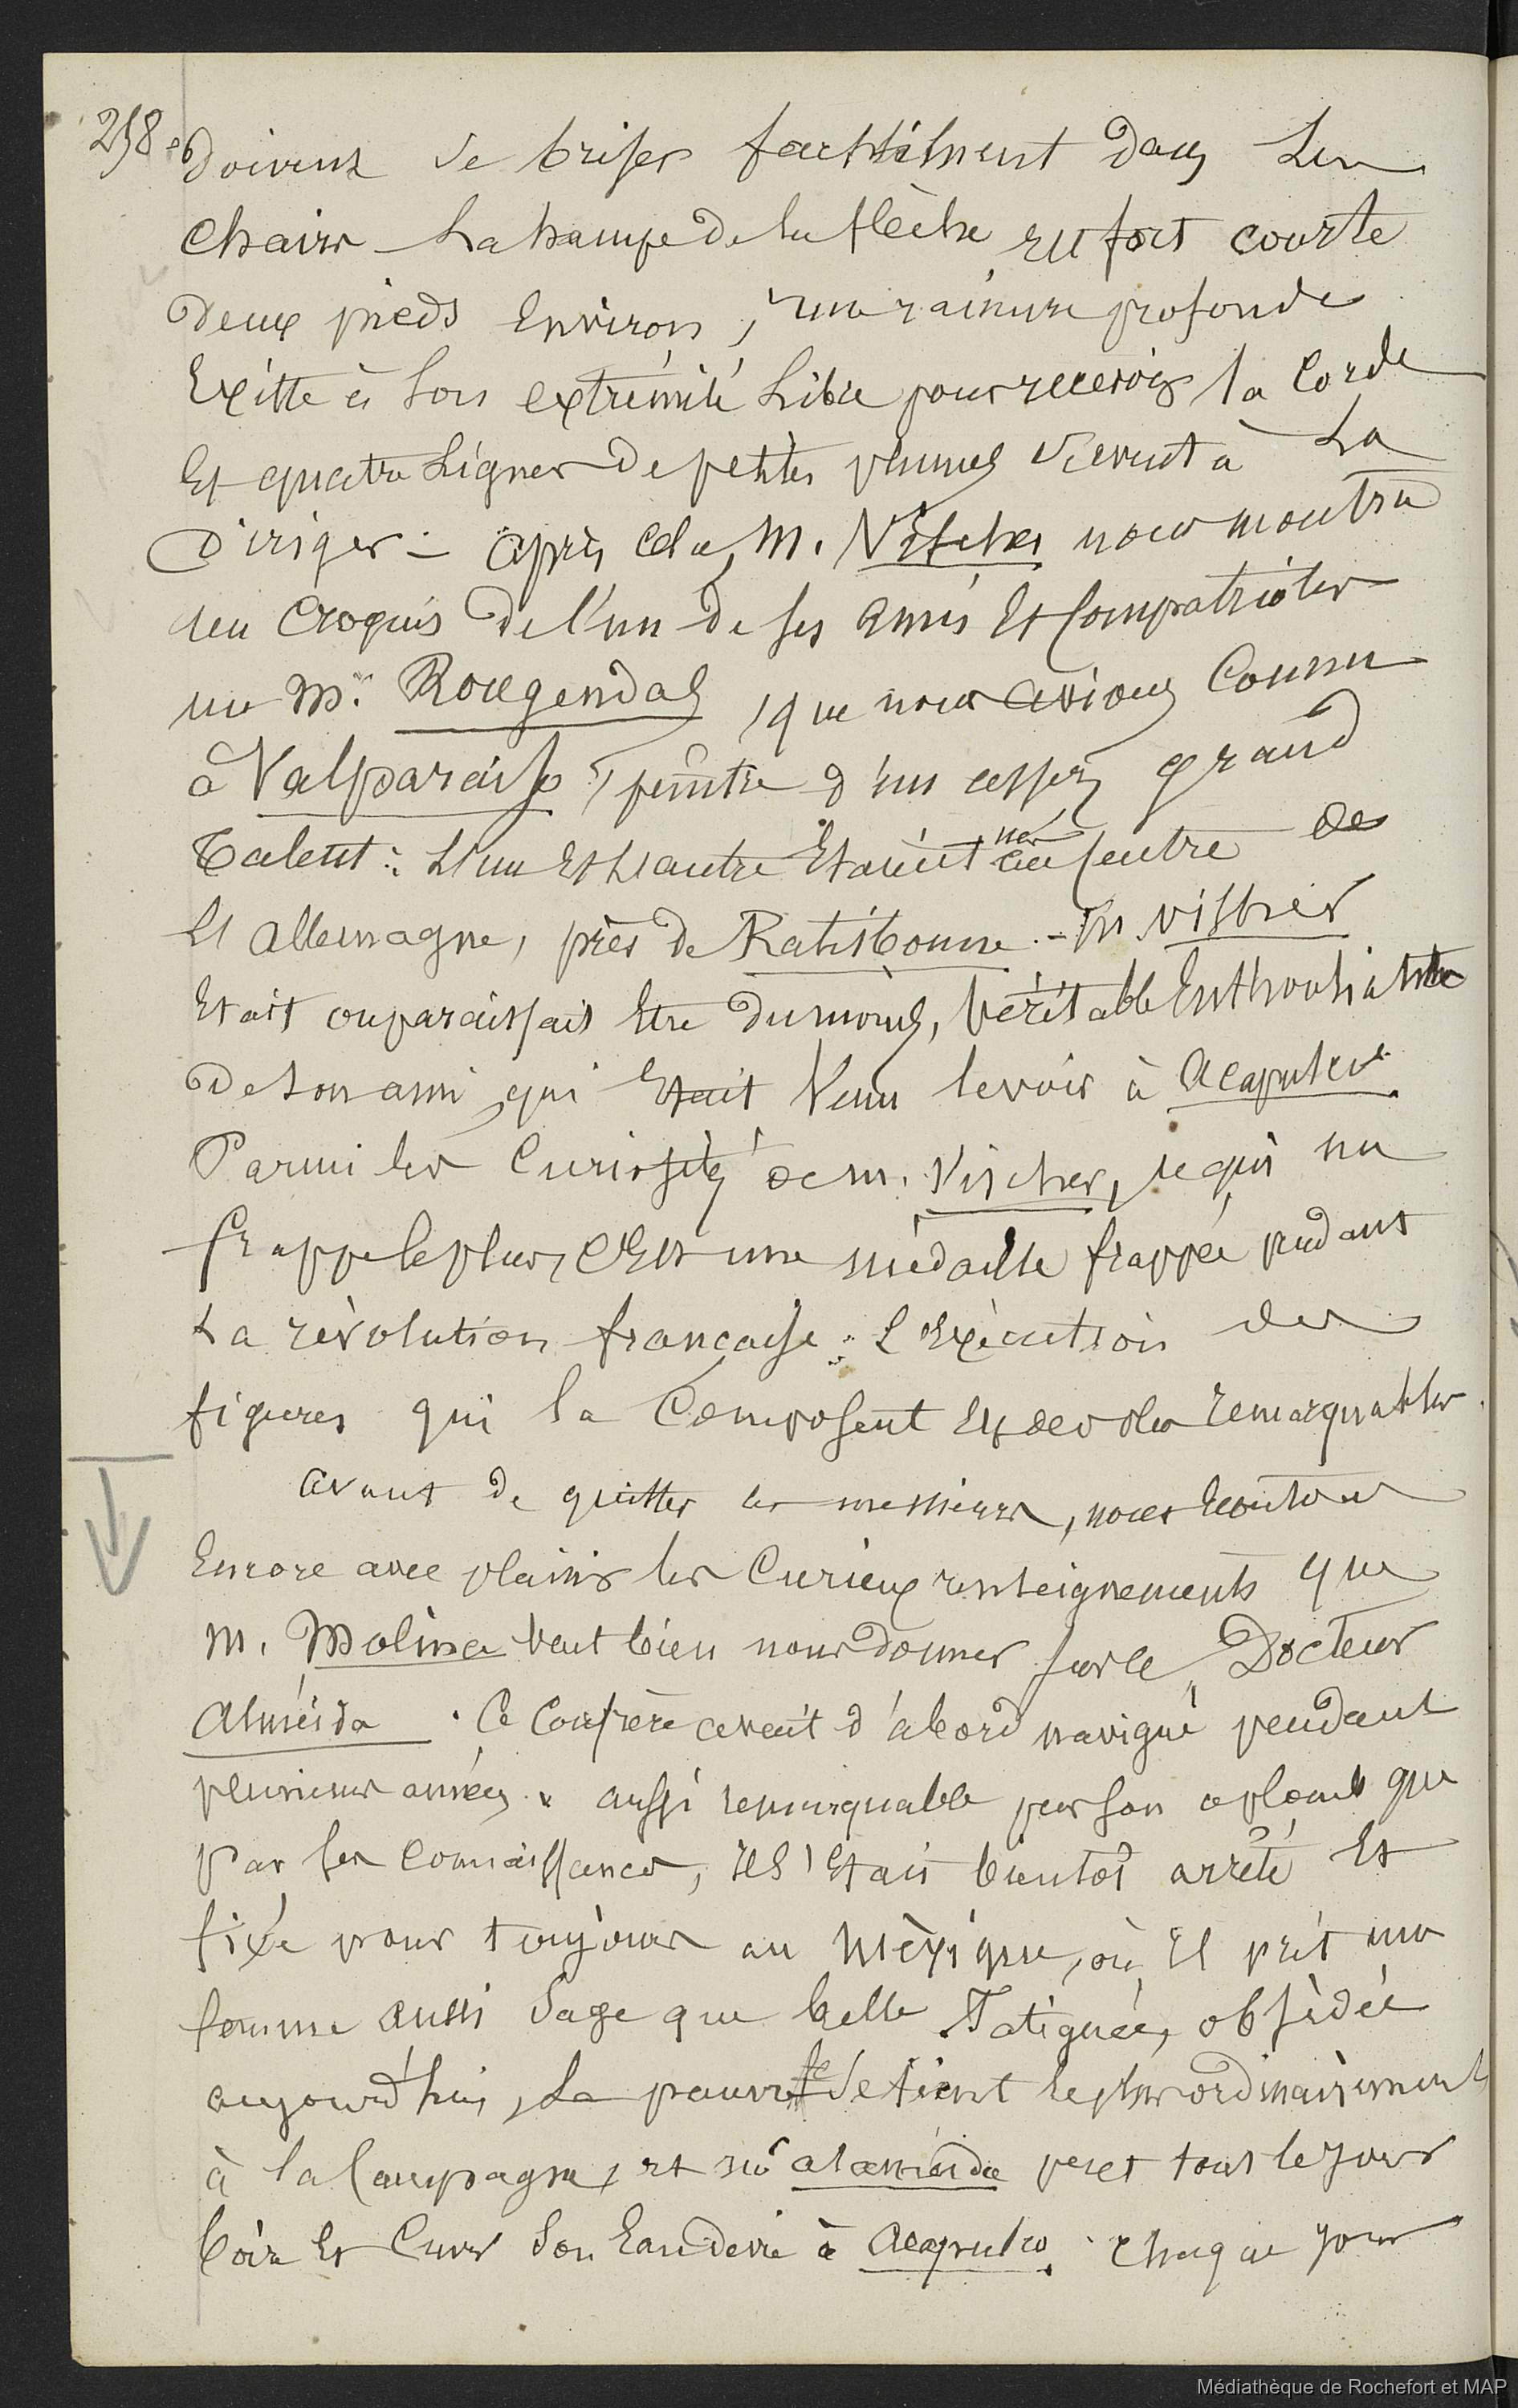 258 doivent se briser facilement dans les
chairs _ La hampe de la flèche est fort courte
deux pieds environ, une rainure profonde
Existe à son extrémité libre pour recevoir la corde
Et quatre lignes de petites plumes servent à La
Diriger _ après cela, M. Vischer nous montra
un croquis de l'un de ses amis Et compatriotes
un Mr. Rougendas, que nous avions connu
à Valparaiso, peintre d'un assez grand
talent : L'un Et L'autre Etaient nés au centre de
L'allemagne, près de Ratisbonne. _ M Vischer
Etait ou paraissait Etre du moins, véritable Enthousiaste
de son ami, qui Etait Venu le voir à Acapulco
Parmi les curiosités de M. Vischer, ce qui me
frappe le plus, c'Est une médaille frappée pendant
La révolution française : L'Exécution des
figures qui la composent Est des plus remarquables.
avant de quitter ces messieurs, nous Ecoutons
Encore avec plaisir les curieux renseignements que
M. Molina veut bien nous donner sur le Docteur
Alméida. Ce confrère avait d'abord navigué pendant
plusieurs années. aussi remarquable par son aplomb que
par ses connaissances, il s'Etait bientôt arrêté Et
fixé pour toujours au Méxique, où Il prit une
femme aussi sage que belle. Fatiguée, obsédée
aujourd'hui, La pauvre se tient le plus ordinairement
à la campagne, et Mr alameida peut tout le jour
boire Et cuver son Eau de vie à Acapulco. chaque jour
Médiathèque de Rochefort et MAP